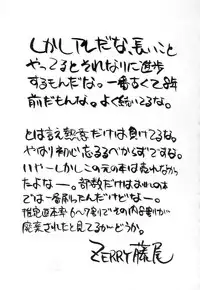 しかしアレだな、長いこと
やってるとそれなりに進歩
するもんだな。一番古くて8年
前だもんな。よく続いてるな。
とは言え熱意だけは負けてるな。
やはり初心忘るるべからずですな。
いやーしかしこの元の本は売れなかっ
たよなー。部数だけは
では一番刷ったんだけどなー。
推定返本率6〜7割でその内8割が
廃棄されたと見てるがどうか。
ZERRY藤尾